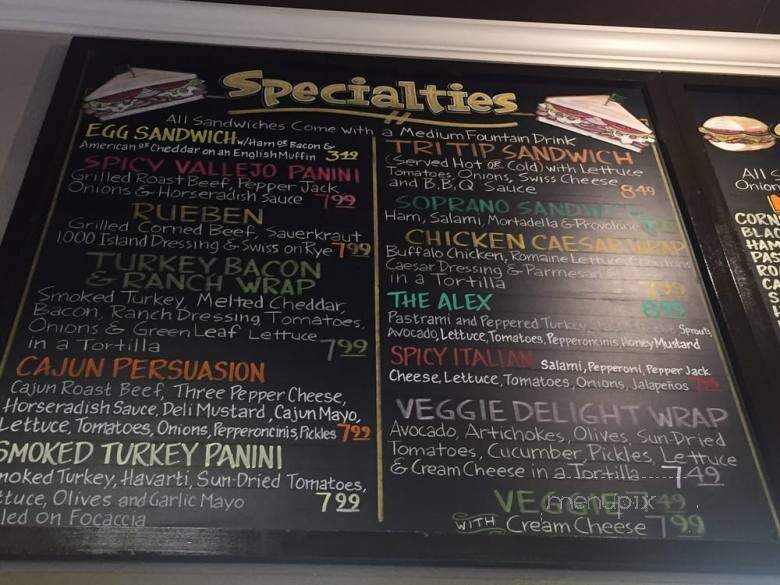 Specialties
All Sandwiches Come with a Medium Fountain Drink
EGG SANDWICH w/Ham or Bacon &
American or Cheddar on an English Muffin 349
SPICY VALLEJO PANINI
Grilled Roast Beef, Pepper Jack,
Onions & Horseradish Sauce 7.99
RUEBEN
Grilled Corned Beef, Sauerkraut
1000 Island Dressing & Swiss on Rye 7.99
TURKEY, BACON
& RANCH WRAP
Smoked Turkey, Melted Cheddar,
Bacon, Ranch Dressing, Tomatoes,
Onions & Green Leaf Lettuce
in a Tortilla 7.99
CAJUN PERSUASION
Cajun Roast Beef, Three Pepper Cheese,
Horseradish Sauce, Deli Mustard, Cajun Mayo,
Lettuce, Tomatoes, Onions, Pepperoncinis, Pickles 7.99
SMOKED TURKEY PANINI
moked Turkey, Havarti, Sun-Dried Tomatoes,
ttuce, Olives and Garlic Mayo
led on Focaccia 7.99
TRI TIP SANDWICH
(Served Hot or Cold) with Lettuce
Tomatoes, Onions, Swiss Cheese
and B.B.Q Sauce 8.49
SOPRANO SANDWICH
Ham, Salami, Mortadella & Provolone
CHICKEN CAESAR WRAP
Buffalo Chicken, Romaine Lettuce, Croutons
Caesar Dressing & Parmesan
in a Tortilla 7.99
THE ALEX 8.99
Pastrami and Peppered Turkey, Sprouts,
Avocado, Lettuce, Tomatoes, Pepperoncinis Honey Mustard
SPICY ITALIAN Salami, Pepperoni, Pepper Jack
Cheese, Lettuce, Tomatoes, Onions, Jalapeños
VEGGIE DELIGHT WRAP
Avocado, Artichokes, Olives, Sun-Dried
Tomatoes, Cucumber, Pickles, Lettuce
& Cream Cheese in a Tortilla 7.49
VEGGIE
WITH Cream Cheese 7.99
menupix
All S
Onion
CORN
BLAC
HAM
PAS